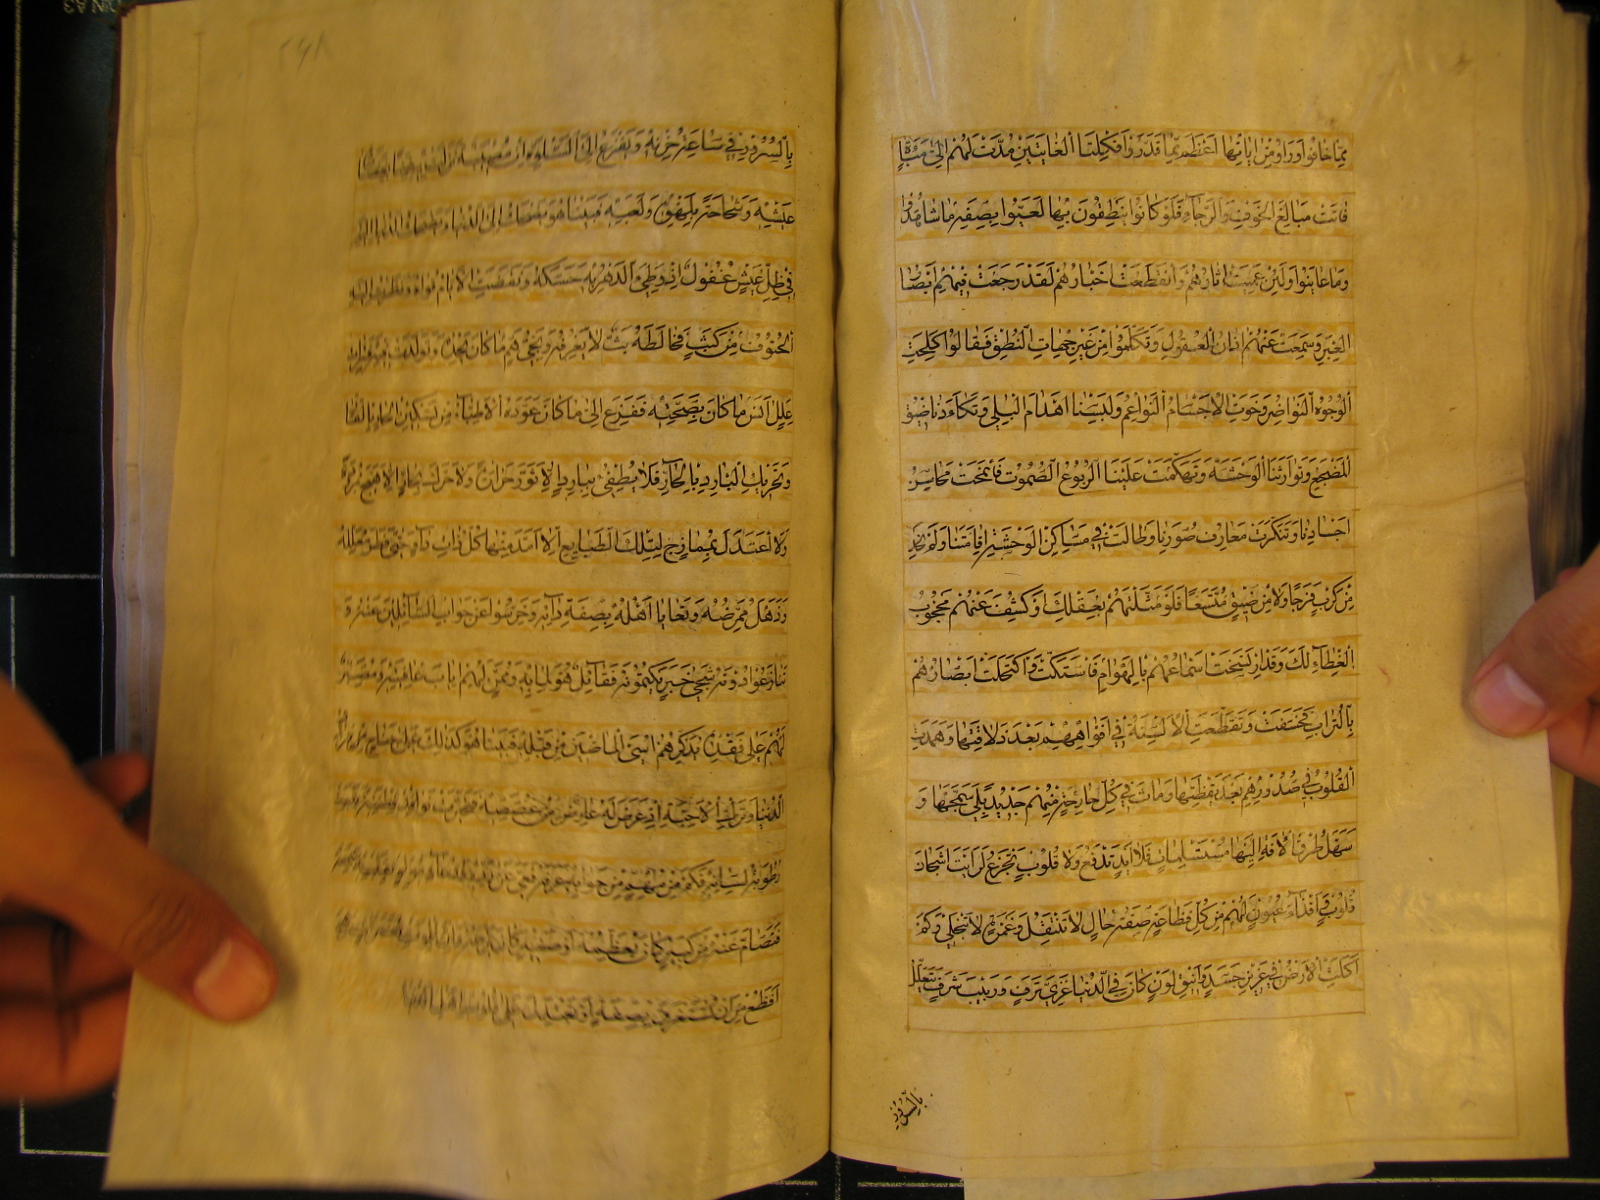 مِمَّا خَافُوا وَرَأَوْا مِنْ اٰيَاتِهَا أَعْظَمَ مِمَّا قَدَّرُوا فَكِلْتَا الْغَايَتَيْنِ مُدَّتْ لَهُمْ إِلَىٰ مَبَاءَةٍ
فَاتَتْ مَبَالِغَ الْخَوْفِ وَالرَّجَاءِ فَلَوْ كَانُوا يَنْطِقُونَ بِهَا لَعَيُّوا بِصِفَةِ مَا شَاهَدُوا
وَمَا عَايَنُوا وَلَئِنْ عَمِيَتْ اٰثَارُهُمْ وَانْقَطَعَتْ أَخْبَارُهُمْ لَقَدْ رَجَعَتْ فِيهِمْ أَبْصَارُ
الْعِبَرِ وَسَمِعَتْ عَنْهُمْ اٰذَانُ الْعُقُولِ وَتَكَلَّمُوا مِنْ غَيْرِ جِهَاتِ النُّطْقِ فَقَالُوا كَلَحَتِ
الْوُجُوهُ النَّوَاضِرُ وَخَوَتِ الْأَجْسَامُ النَّوَاعِمُ وَلَبِسْنَا أَهْدَامَ الْبِلَى وَتَكَاءَدَنَا ضِيقُ
الْمَضْجَعِ وَتَوَارَثْنَا الْوَحْشَةَ وَتَهَكَّمَتْ عَلَيْنَا الرُّبُوعُ الصُّمُوتُ فَانْمَحَتْ مَحَاسِنُ
أَجْسَادِنَا وَتَنَكَّرَتْ مَعَارِفُ صُوَرِنَا وَطَالَتْ فِي مَسَاكِنِ الْوَحْشَةِ إِقَامَتُنَا وَلَمْ نَجِدْ
مِنْ كَرْبٍ فَرَجًا وَلَا مِنْ ضِيقٍ مُتَّسَعًا فَلَوْ مَثَّلْتَهُمْ بِعَقْلِكَ أَوْ كُشِفَ عَنْهُمْ مَحْجُوبُ
الْغِطَاءِ لَكَ وَقَدِ ارْتَسَخَتْ أَسْمَاعُهُمْ بِالْهَوَامِّ فَاسْتَكَّتْ وَاكْتَحَلَتْ أَبْصَارُهُمْ
بِالتُّرَابِ فَخَسَفَتْ وَتَقَطَّعَتِ الْأَلْسِنَةُ فِي أَفْوَاهِهِمْ بَعْدَ ذَلَاقَتِهَا وَهَمَدَتِ
الْقُلُوبُ فِي صُدُورِهِمْ بَعْدَ يَقْظَتِهَا وَعَاثَ فِي كُلِّ جَارِحَةٍ مِنْهُمْ جَدِيدُ بِلًى سَمَّجَهَا وَ
سَهَّلَ طُرُقَ الْاٰفَةِ إِلَيْهَا مُسْتَسْلِمَاتٍ فَلَا أَيْدٍ تَدْفَعُ وَلَا قُلُوبٌ تَجْزَعُ لَرَأَيْتَ أَشْجَانَ
قُلُوبٍ وَأَقْذَاءَ عُيُونٍ لَهُمْ مِنْ كُلِّ فَظَاعَةٍ صِفَةُ حَالٍ لَا تَنْتَقِلُ وَغَمْرَةٌ لَا تَنْجَلِي وَكَمْ
أَكَلَتِ الْأَرْضُ مِنْ عَزِيزِ جَسَدٍ وَأَنِيقِ لَوْنٍ كَانَ فِي الدُّنْيَا غَذِيَّ تَرَفٍ وَرَبِيبَ شَرَفٍ يَتَعَلَّلُ
بِالسُّرُورِ
٢٤٨
بِالسُّرُورِ فِي سَاعَةِ حُزْنِهِ وَيَفْزَعُ إِلَى السَّلْوَةِ إِنْ مُصِيبَةٌ نَزَلَتْ بِهِ
عَيْشِهِ وَشَحَاحَةً بِلَهْوِهِ وَلَعِبِهِ فَبَيْنَا هُوَ يَضْحَكُ إِلَى الدُّنْيَا وَتَضْحَكُ الدُّنْيَا إِلَيْهِ
فِي ظِلِّ عَيْشٍ غَفُولٍ إِذْ وَطِئَ الدَّهْرُ بِهِ حَسَكَهُ وَنَقَضَتِ الْأَيَّامُ قُوَاهُ وَنَظَرَتْ إِلَيْهِ
الْحُتُوفُ مِنْ كَثَبٍ فَخَالَطَهُ بَثٌّ لَا يَعْرِفُهُ وَنَجِيُّ هَمٍّ مَا كَانَ يَجِدُهُ وَتَوَلَّدَتْ فِيهِ فَتَرَاتُ
عِلَلٍ اٰنَسَ مَا كَانَ بِصِحَّتِهِ فَفَزِعَ إِلَىٰ مَا كَانَ عَوَّدَهُ الْأَطِبَّاءُ مِنْ تَسْكِينِ الْحَارِّ بِالْقَارِّ
وَتَحْرِيكِ الْبَارِدِ بِالْحَارِّ فَلَمْ يُطْفِئْ بِبَارِدٍ إِلَّا ثَوَّرَ حَرَارَةً وَلَا حَرَّكَ بِحَارٍّ إِلَّا هَيَّجَ بُرُودَةً
وَلَا اعْتَدَلَ بِمُمَازِجٍ لِتِلْكَ الطَّبَايِعِ إِلَّا أَمَدَّ مِنْهَا كُلَّ ذَاتِ دَاءٍ حَتَّى فَتَرَ مُعَلِّلُهُ
وَذَهَلَ مُمَرِّضُهُ وَتَعَايَا أَهْلُهُ بِصِفَةِ دَائِهِ وَخَرِسُوا عَنْ جَوَابِ السَّائِلِينَ عَنْهُ وَ
تَنَازَعُوا دُونَهُ شَجِيَّ خَبَرٍ يَكْتُمُونَهُ فَقَائِلٌ هُوَ لِمَا بِهِ وَمُمَنٍّ لَهُمْ إِيَابَ عَافِيَتِهِ وَمُصَبِّرٌ
لَهُمْ عَلَىٰ فَقْدِهِ يُذَكِّرُهُمْ أُسَى الْمَاضِينَ مِنْ قَبْلِهِ فَبَيْنَا هُوَ كَذٰلِكَ عَلَىٰ جَنَاحٍ مِنْ فِرَاقِ
الدُّنْيَا وَتَرْكِ الْأَحِبَّةِ إِذْ عَرَضَ لَهُ عَارِضٌ مِنْ غُصَصِهِ فَتَحَيَّرَتْ نَوَافِذُ فِطْنَتِهِ وَيَبِسَتْ
رُطُوبَةُ لِسَانِهِ فَكَمْ مِنْ مُهِمٍّ مِنْ جَوَابِهِ عَرَفَهُ فَعَيَّ عَنْ رَدِّهِ وَدُعَاءٍ مُؤْلِمٍ لِقَلْبِهِ سَمِعَهُ
فَتَصَامَّ عَنْهُ مِنْ كَبِيرٍ كَانَ يُعَظِّمُهُ أَوْ صَغِيرٍ كَانَ يَرْحَمُهُ وَإِنَّ لِلْمَوْتِ لَغَمَرَاتٍ هِيَ
أَفْظَعُ مِنْ أَنْ تُسْتَغْرَقَ بِصِفَةٍ أَوْ تَعْتَدِلَ عَلَىٰ عُقُولِ أَهْلِ الدُّنْيَا